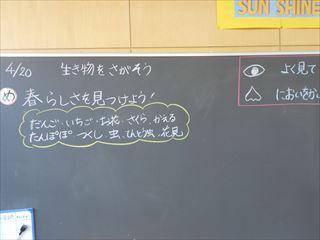 SUN SHINE
4/20 生き物をさがそう
め 春らしさを見つけよう!
だんご・いちご・お花・さくら・かえる
たんぽぽ、つくし、虫、てんとう虫、花見
よく見て
においをか